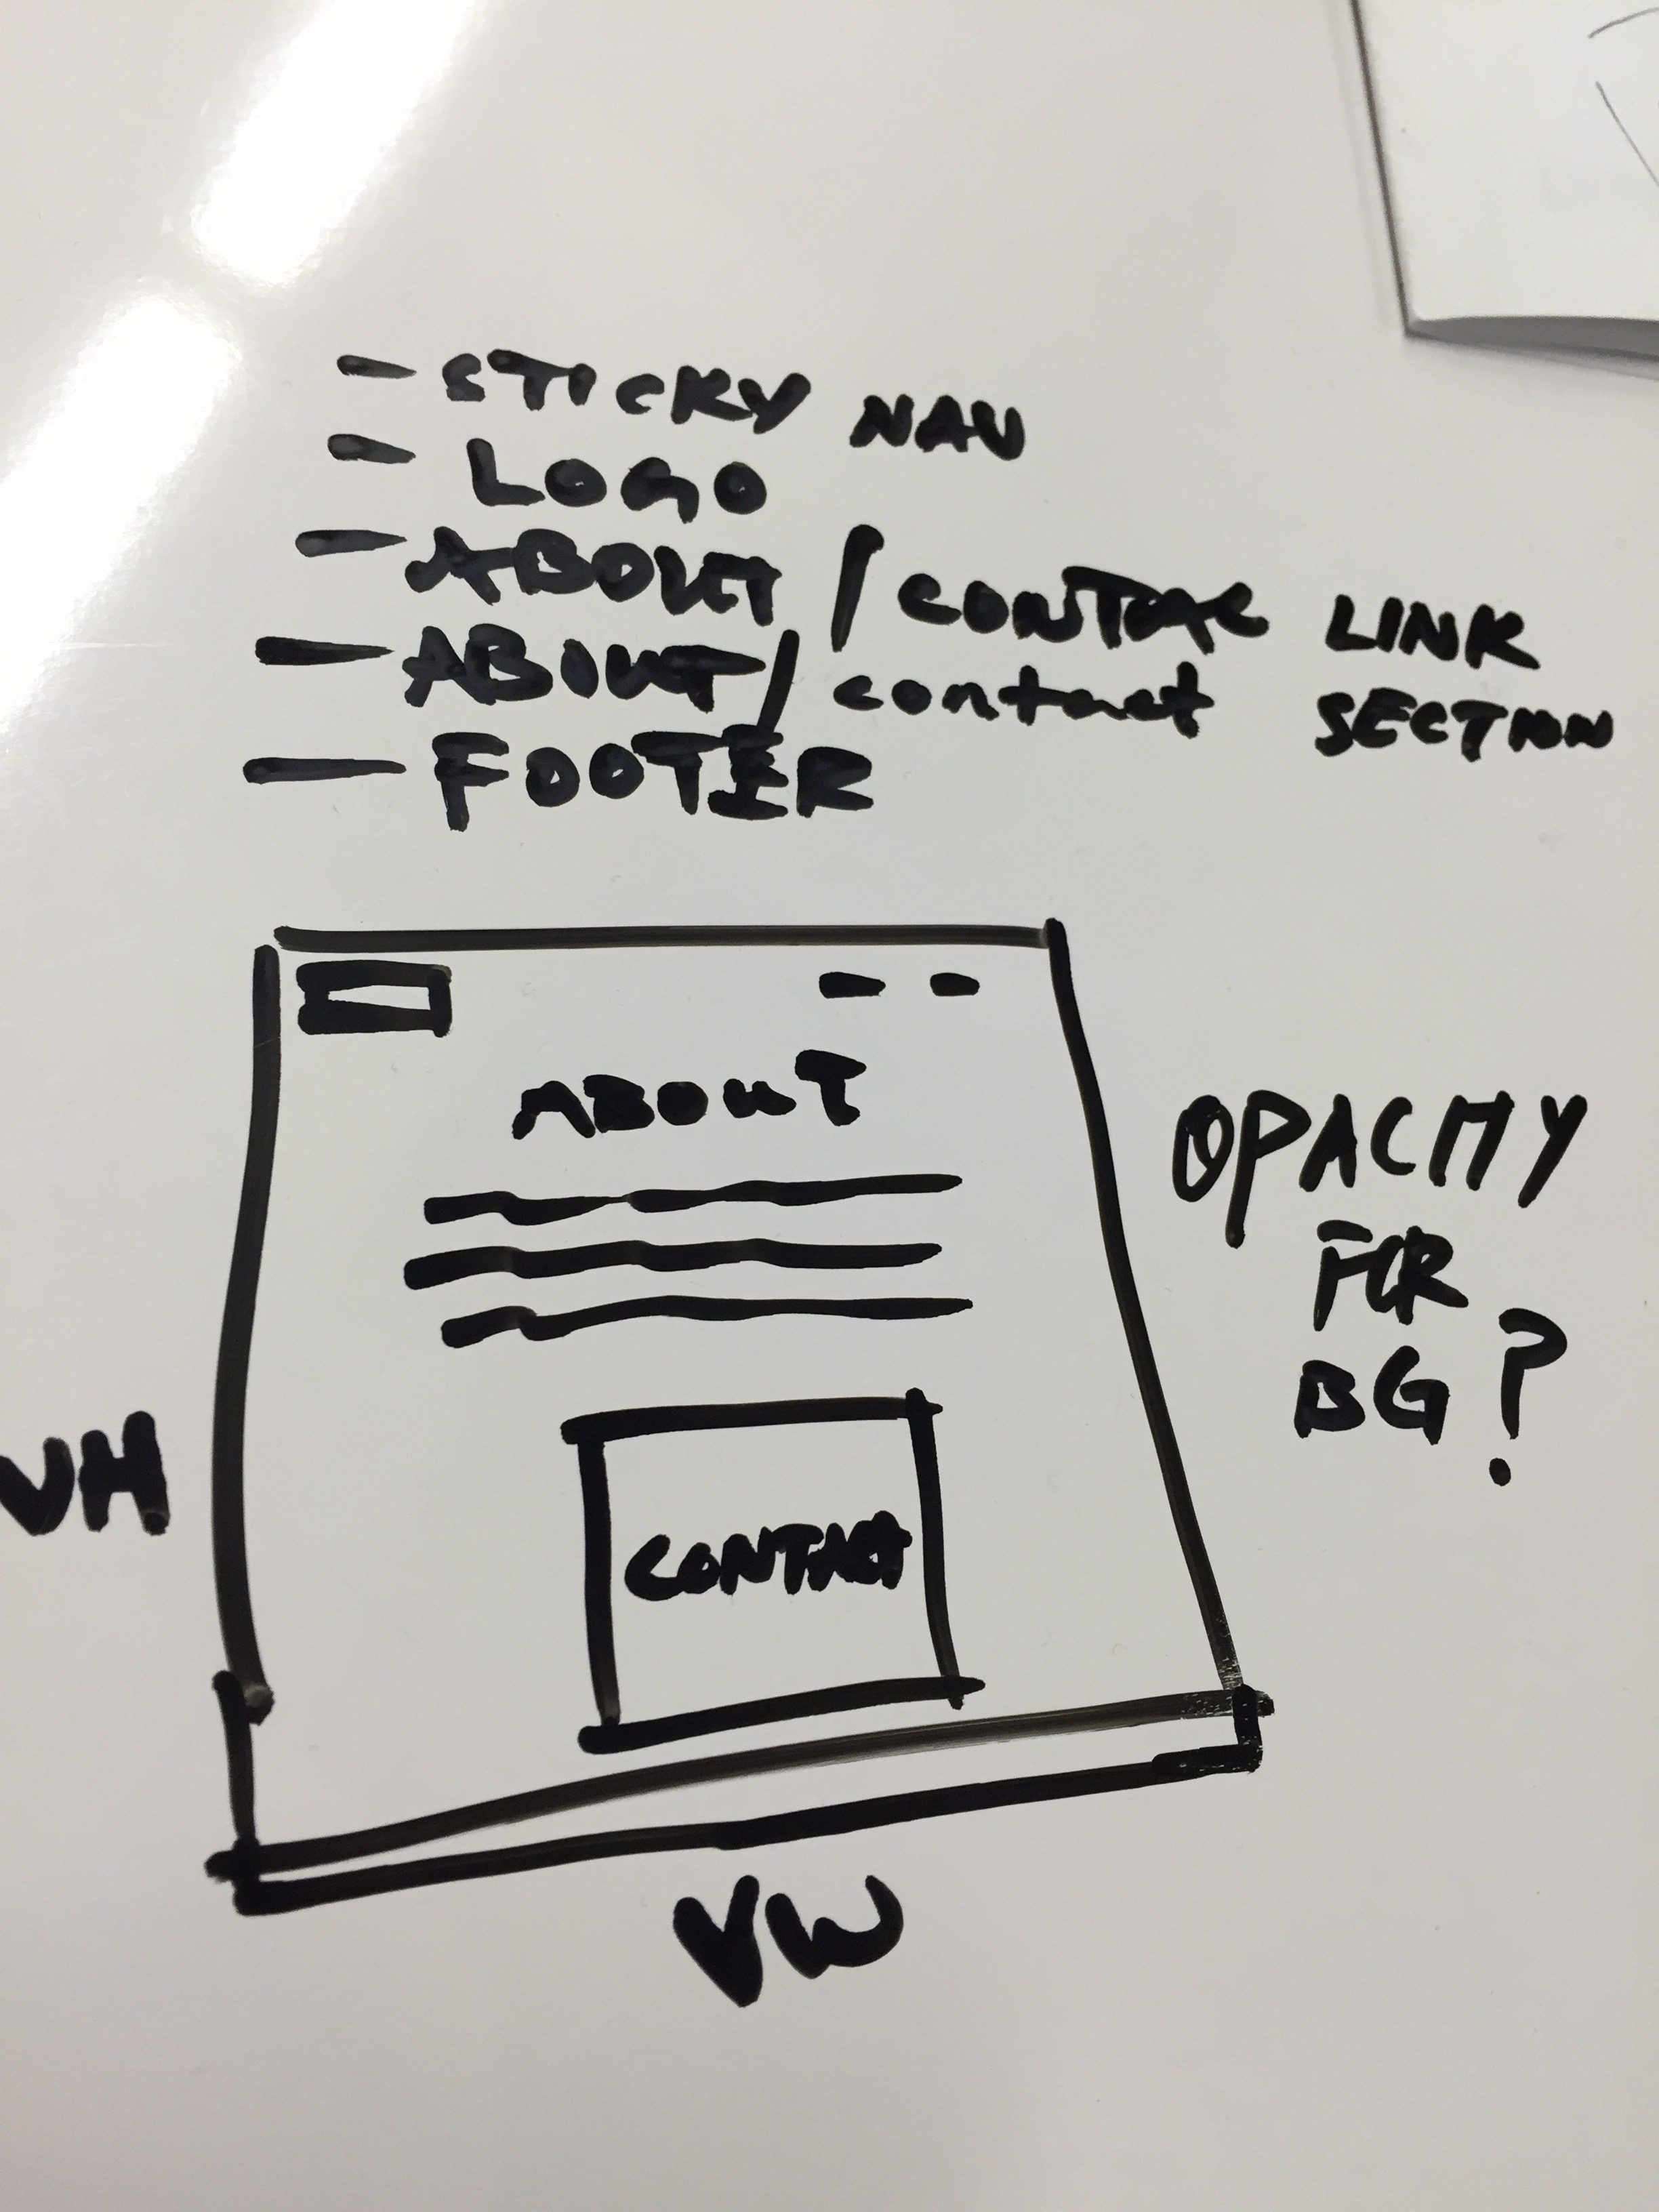 - STICKY NAV
- LOGO
- ABOUT / CONTAC LINK
- ABOUT / contact SECTION
- FOOTER
ABOUT
OPACITY
FOR
BG ?
CONTACT
VH
VW